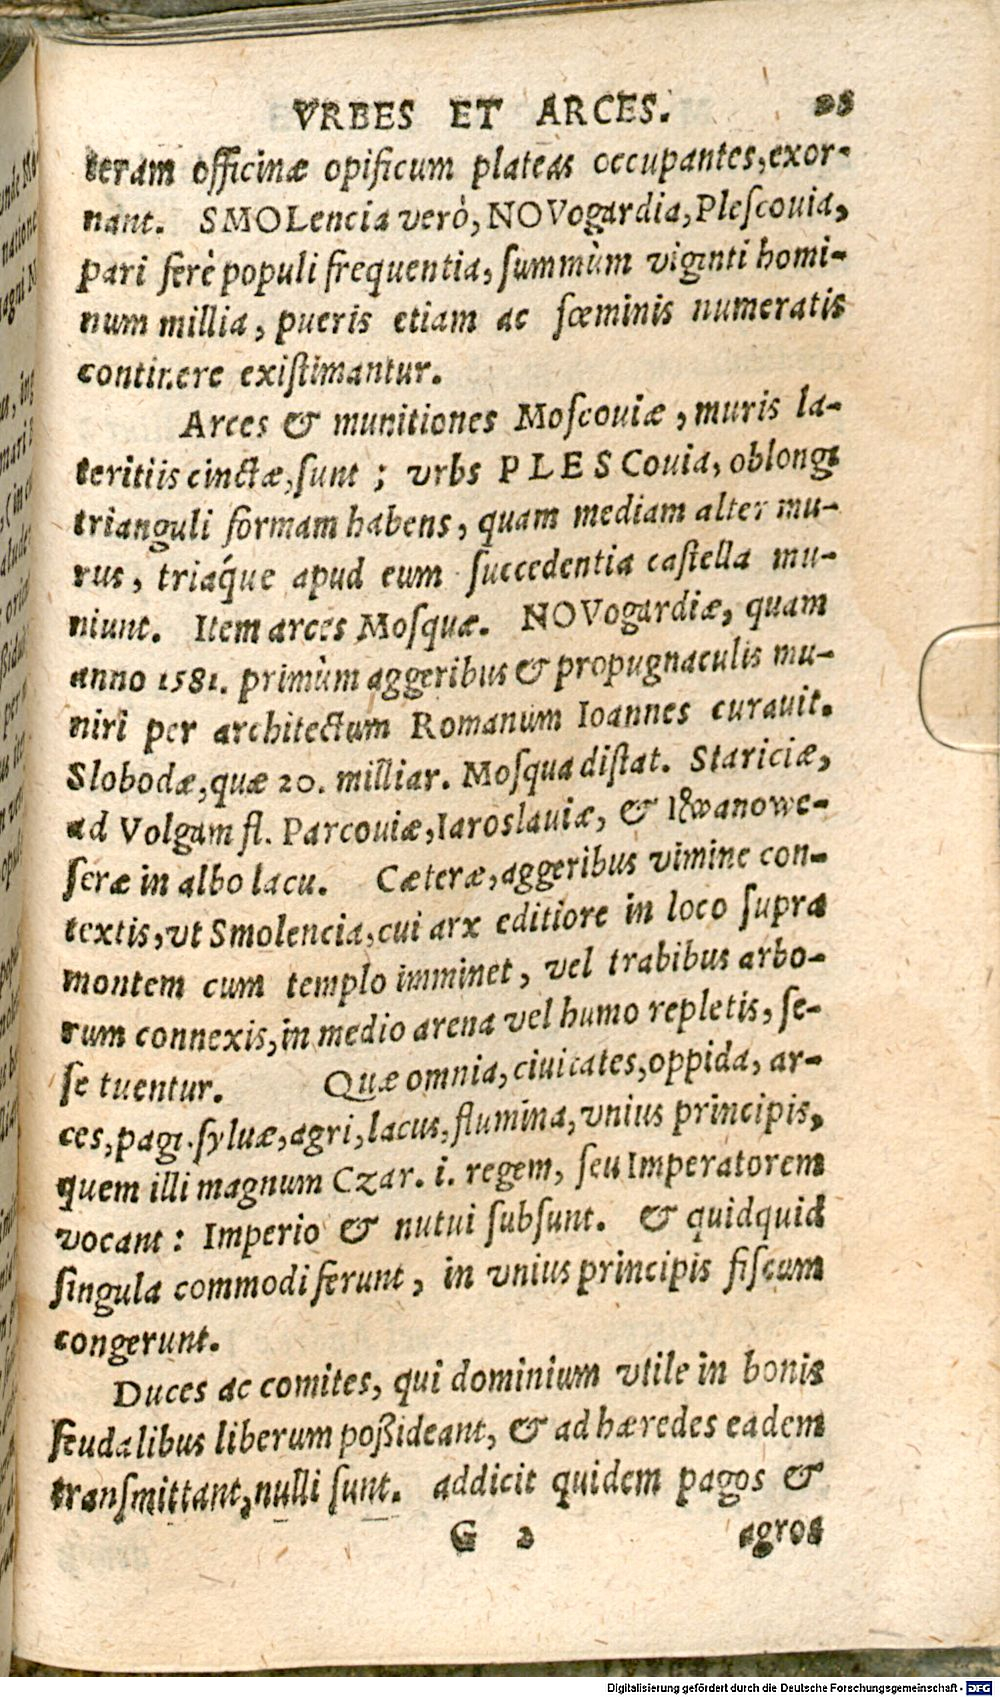 VRBES ET ARCES.
teram officinæ opificum plateas occupantes, exor-
nant. SMOLencia verò, NOVogardia, Pleſcouia,
pari ferè populi frequentia, ſummùm viginti homi-
num millia, pueris etiam ac fœminis numeratis
continere exiſtimantur.
Arces & munitiones Moſcouiæ, muris la-
teritiis cinctæ, ſunt; vrbs PLESCouia, oblongi
trianguli formam habens, quam mediam alter mu-
rus, triáque apud eum ſuccedentia caſtella mu-
niunt. Item arces Moſquæ. NOVogardiæ, quam
anno 1581. primùm aggeribus & propugnaculis mu-
niri per architectum Romanum Ioannes curauit.
Slobodæ, quæ 20. milliar. Moſqua diſtat. Stariciæ,
ad Volgam fl. Parcouiæ, Iaroslauiæ, &
ſeræ in albo lacu. Cæteræ, aggeribus vimine con-
textis, vt Smolencia, cui arx editiore in loco ſupra
montem cum templo imminet, vel trabibus arbo-
rum connexis, in medio arena vel humo repletis, ſe-
ſe tuentur. Quæ omnia, ciuitates, oppida, ar-
ces, pagi. ſyluæ, agri, lacus, flumina, vnius principis,
quem illi magnum Czar. i. regem, ſeu Imperatorem
vocant: Imperio & nutui ſubſunt. & quidquid
ſingula commodi ferunt, in vnius principis fiſcum
congerunt.
Duces ac comites, qui dominium vtile in bonis
feudalibus liberum poßideant, & ad hæredes eadem
tranſmittant, nulli ſunt. addicit quidem pagos &
G 2 agros
Digitalisierung gefördert durch die Deutsche Forschungsgemeinschaft - DFG